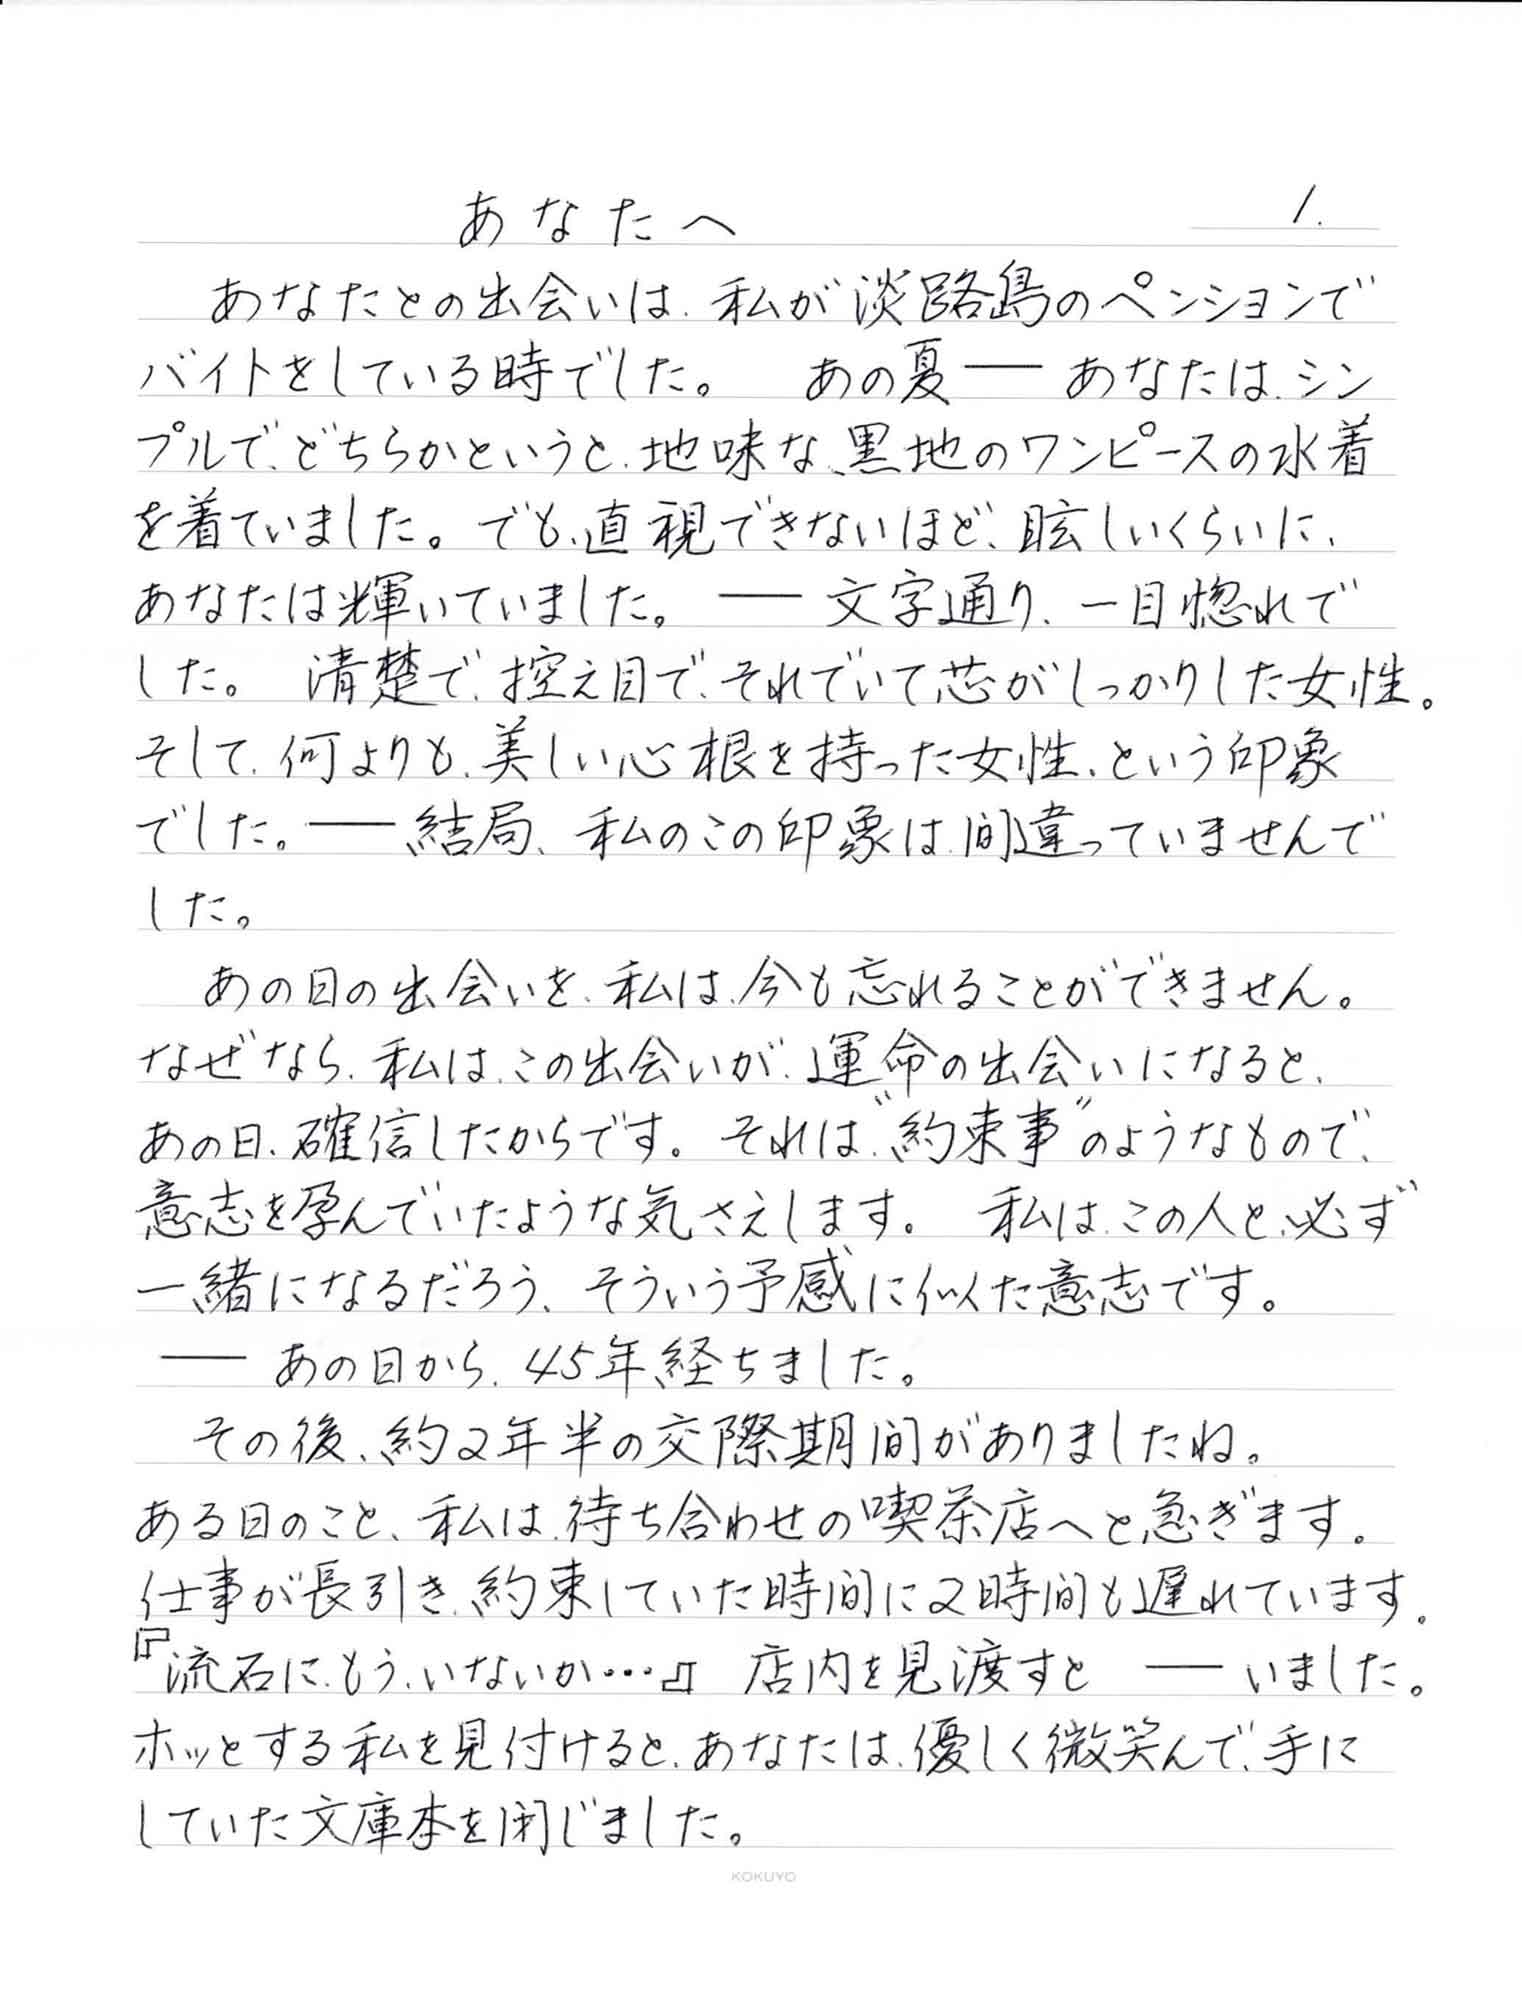 あなたへ
1.
あなたとの出会いは、私が淡路島のペンションで
バイトをしている時でした。 あの夏――あなたは、シン
プルで、どちらかというと、地味な、黒地のワンピースの水着
を着ていました。でも、直視できないほど、眩しいくらいに、
あなたは輝いていました。――文字通り、一目惚れで
した。 清楚で、控え目で、それでいて芯がしっかりした女性。
そして、何よりも、美しい心根を持った女性、という印象
でした。――結局、私のこの印象は、間違っていませんで
した。
あの日の出会いを、私は、今も忘れることができません。
なぜなら、私は、この出会いが、運命の出会いになると、
あの日、確信したからです。それは、“約束事”のようなもので、
意志を孕んでいたような気さえします。 私は、この人と、必ず
一緒になるだろう、そういう予感に似た意志です。
――あの日から、45年経ちました。
その後、約2年半の交際期間がありましたね。
ある日のこと、私は、待ち合わせの喫茶店へと急ぎます。
仕事が長引き、約束していた時間に2時間も遅れています。
『流石に、もう、いないか…』 店内を見渡すと ――いました。
ホッとする私を見付けると、あなたは、優しく微笑んで、手に
していた文庫本を閉じました。
KOKUYO